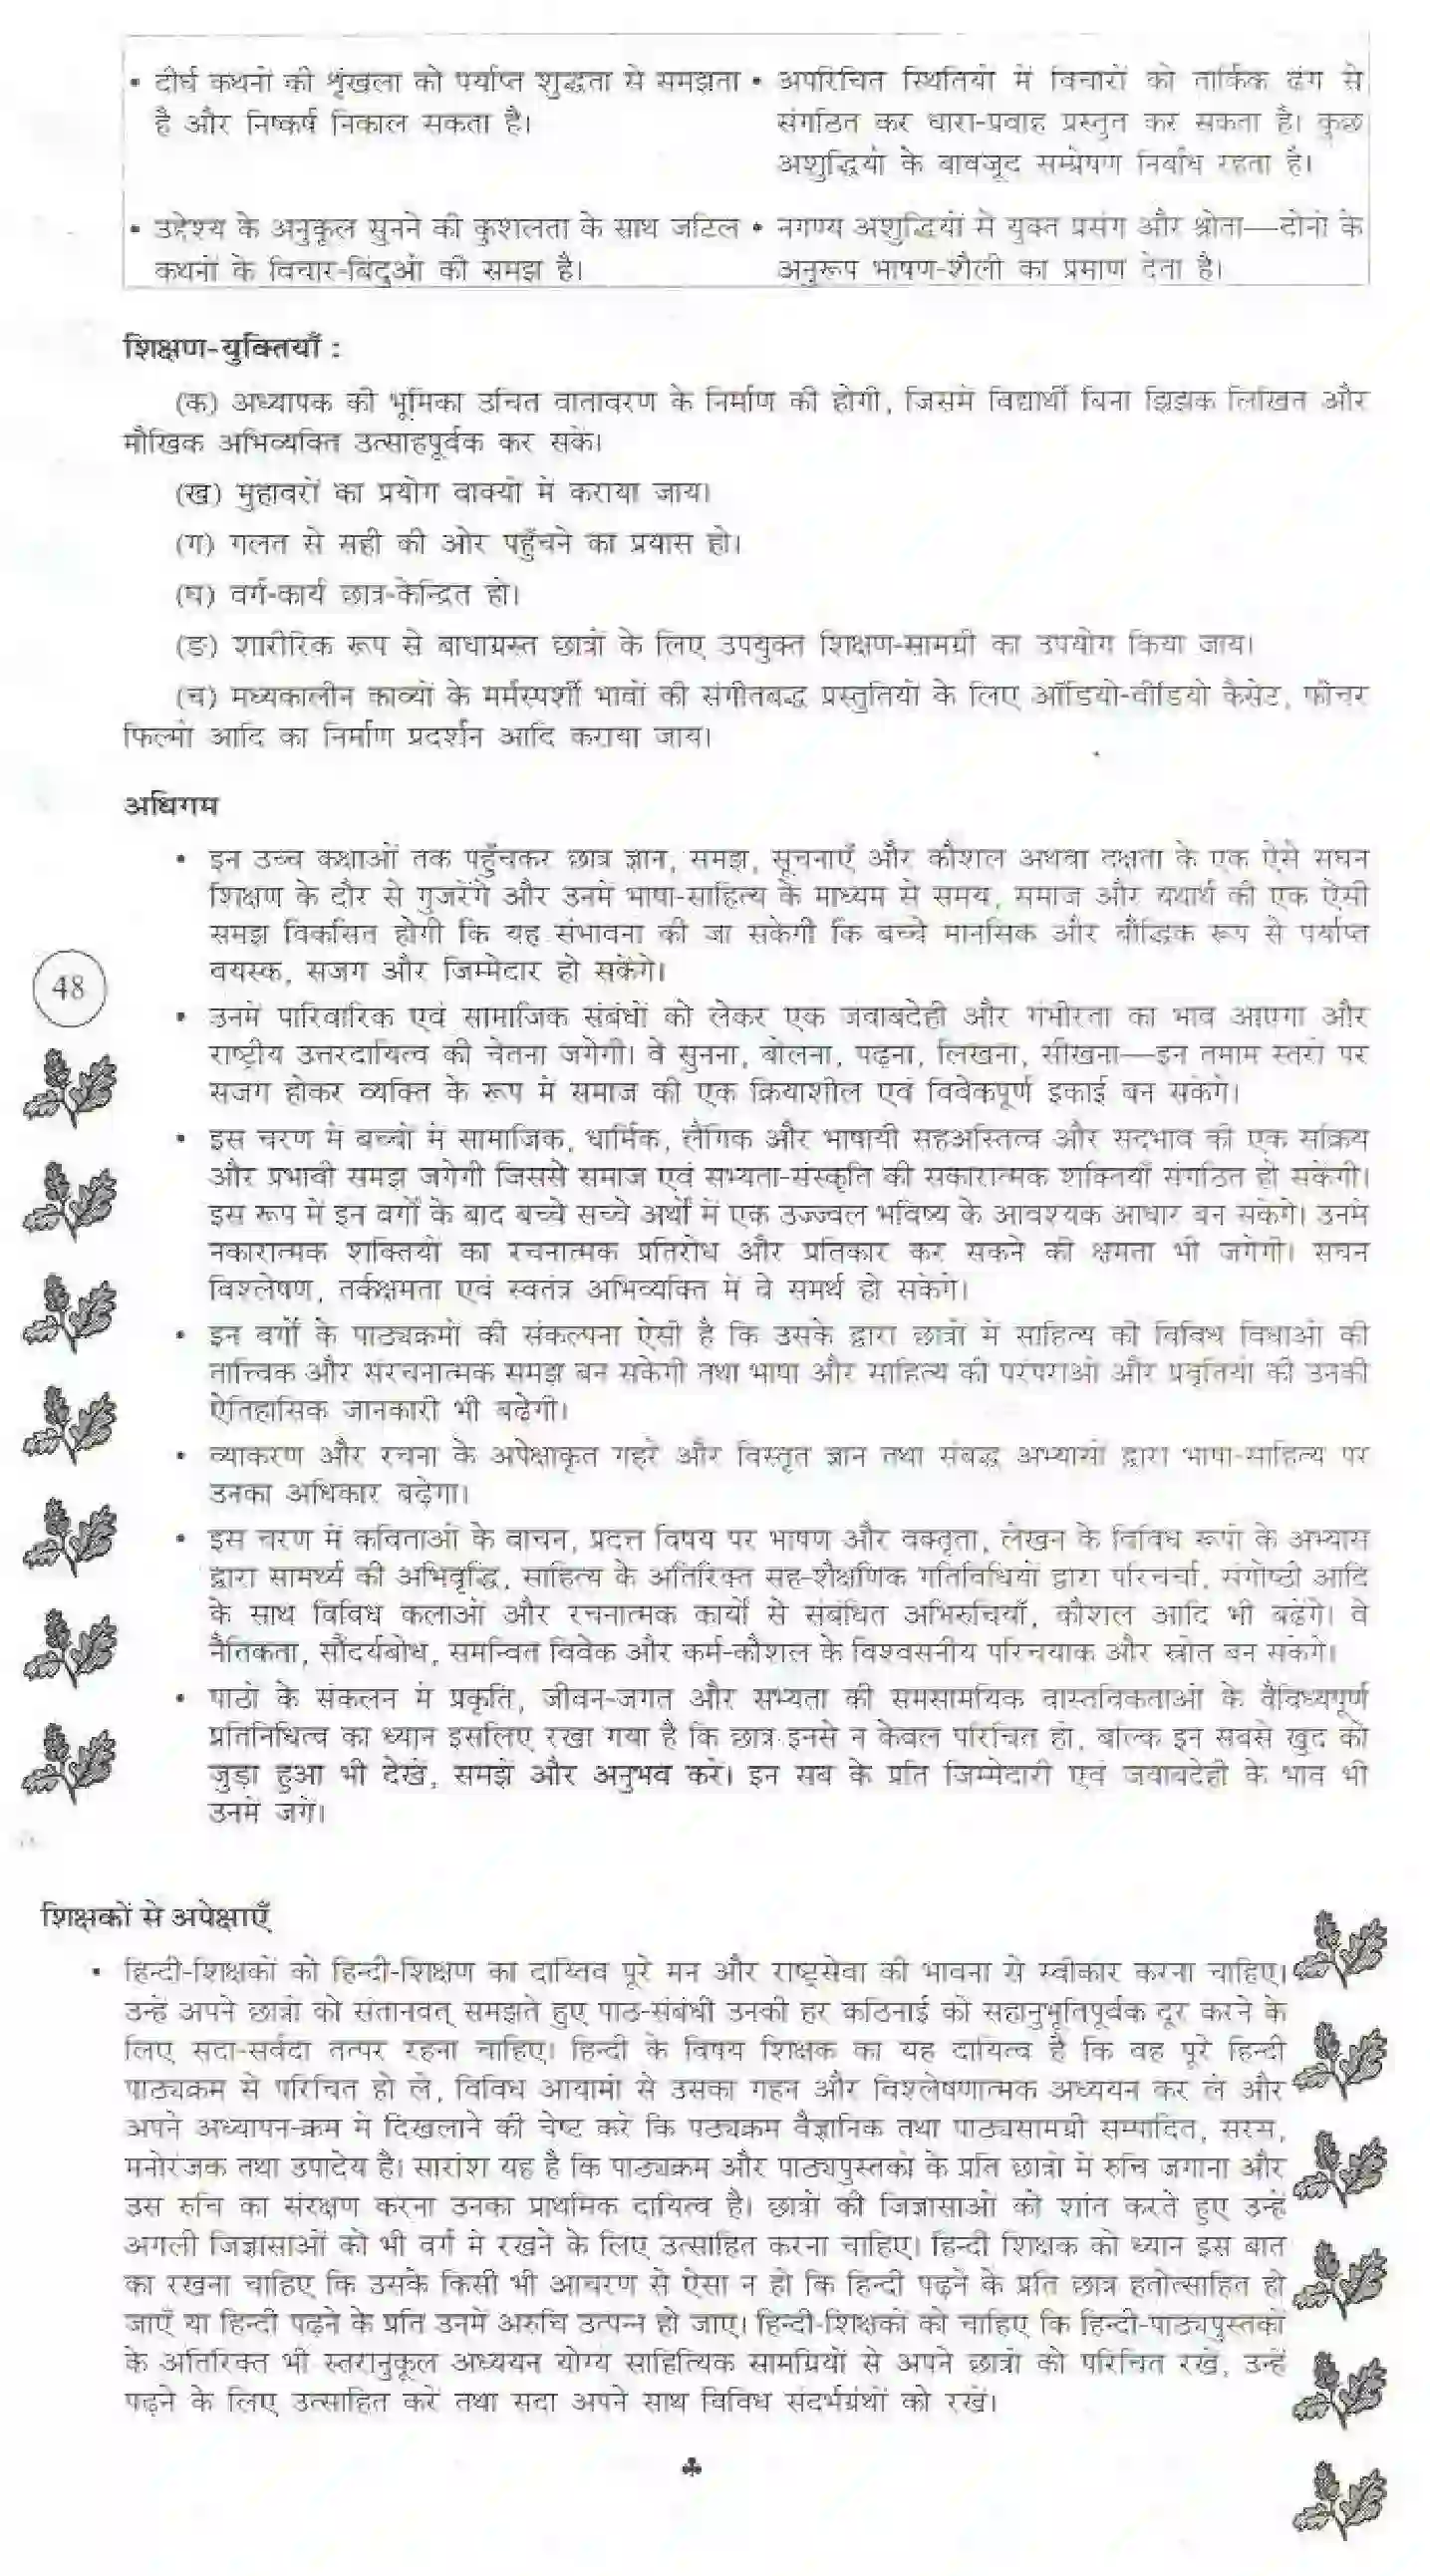 • दीर्घ कथनों की शृंखला को पर्याप्त शुद्धता से समझता
है और निष्कर्ष निकाल सकता है।
• अपरिचित स्थितियों में विचारों को तार्किक ढंग से
संगठित कर धारा-प्रवाह प्रस्तुत कर सकता है। कुछ
अशुद्धियों के बावजूद सम्प्रेषण निर्बाध रहता है।
• उद्देश्य के अनुकूल सुनने की कुशलता के साथ जटिल
कथनों के विचार-बिंदुओं की समझ है।
• नगण्य अशुद्धियों से युक्त प्रसंग और श्रोता—दोनों के
अनुरूप भाषण-शैली का प्रमाण देता है।
शिक्षण-युक्तियाँ :
(क) अध्यापक की भूमिका उचित वातावरण के निर्माण की होगी, जिसमें विद्यार्थी बिना झिझक लिखित और
मौखिक अभिव्यक्ति उत्साहपूर्वक कर सकें।
(ख) मुहावरों का प्रयोग वाक्यों में कराया जाय।
(ग) गलत से सही की ओर पहुँचने का प्रयास हो।
(घ) वर्ग-कार्य छात्र-केन्द्रित हो।
(ङ) शारीरिक रूप से बाधाग्रस्त छात्रों के लिए उपयुक्त शिक्षण-सामग्री का उपयोग किया जाय।
(च) मध्यकालीन काव्यों के मर्मस्पर्शी भावों की संगीतबद्ध प्रस्तुतियों के लिए ऑडियो-वीडियो कैसेट, फीचर
फिल्मों आदि का निर्माण प्रदर्शन आदि कराया जाय।
अधिगम
• इन उच्च कक्षाओं तक पहुँचकर छात्र ज्ञान, समझ, सूचनाएँ और कौशल अथवा दक्षता के एक ऐसे सघन
शिक्षण के दौर से गुजरेंगे और उनमें भाषा-साहित्य के माध्यम से समय, समाज और यथार्थ की एक ऐसी
समझ विकसित होगी कि यह संभावना की जा सकेगी कि बच्चे मानसिक और बौद्धिक रूप से पर्याप्त
वयस्क, सजग और जिम्मेदार हो सकेंगे।
48
• उनमें पारिवारिक एवं सामाजिक संबंधों को लेकर एक जवाबदेही और गंभीरता का भाव आएगा और
राष्ट्रीय उत्तरदायित्व की चेतना जगेगी। वे सुनना, बोलना, पढ़ना, लिखना, सीखना—इन तमाम स्तरों पर
सजग होकर व्यक्ति के रूप में समाज की एक क्रियाशील एवं विवेकपूर्ण इकाई बन सकेंगे।
• इस चरण में बच्चों में सामाजिक, धार्मिक, लैंगिक और भाषायी सहअस्तित्व और सद्भाव की एक सक्रिय
और प्रभावी समझ जगेगी जिससे समाज एवं सभ्यता-संस्कृति की सकारात्मक शक्तियाँ संगठित हो सकेंगी।
इस रूप में इन वर्गों के बाद बच्चे सच्चे अर्थों में एक उज्ज्वल भविष्य के आवश्यक आधार बन सकेंगे। उनमें
नकारात्मक शक्तियों का रचनात्मक प्रतिरोध और प्रतिकार कर सकने की क्षमता भी जगेगी। सघन
विश्लेषण, तर्कक्षमता एवं स्वतंत्र अभिव्यक्ति में वे समर्थ हो सकेंगे।
• इन वर्गों के पाठ्यक्रमों की संकल्पना ऐसी है कि उसके द्वारा छात्रों में साहित्य की विविध विधाओं की
तात्त्विक और संरचनात्मक समझ बन सकेगी तथा भाषा और साहित्य की परंपराओं और प्रवृतियों की उनकी
ऐतिहासिक जानकारी भी बढ़ेगी।
• व्याकरण और रचना के अपेक्षाकृत गहरे और विस्तृत ज्ञान तथा संबद्ध अभ्यासों द्वारा भाषा-साहित्य पर
उनका अधिकार बढ़ेगा।
• इस चरण में कविताओं के वाचन, प्रदत्त विषय पर भाषण और वक्तृता, लेखन के विविध रूपों के अभ्यास
द्वारा सामर्थ्य की अभिवृद्धि, साहित्य के अतिरिक्त सह-शैक्षणिक गतिविधियों द्वारा परिचर्चा, संगोष्ठी आदि
के साथ विविध कलाओं और रचनात्मक कार्यों से संबंधित अभिरुचियाँ, कौशल आदि भी बढ़ेंगे। वे
नैतिकता, सौंदर्यबोध, समन्वित विवेक और कर्म-कौशल के विश्वसनीय परिचयाक और स्रोत बन सकेंगे।
• पाठों के संकलन में प्रकृति, जीवन-जगत और सभ्यता की समसामयिक वास्तविकताओं के वैविध्यपूर्ण
प्रतिनिधित्व का ध्यान इसलिए रखा गया है कि छात्र इनसे न केवल परिचित हों, बल्कि इन सबसे खुद को
जुड़ा हुआ भी देखें, समझें और अनुभव करें। इन सब के प्रति जिम्मेदारी एवं जवाबदेही के भाव भी
उनमें जगें।
शिक्षकों से अपेक्षाएँ
• हिन्दी-शिक्षकों को हिन्दी-शिक्षण का दायित्व पूरे मन और राष्ट्रसेवा की भावना से स्वीकार करना चाहिए।
उन्हें अपने छात्रों को संतानवत् समझते हुए पाठ-संबंधी उनकी हर कठिनाई को सहानुभूतिपूर्वक दूर करने के
लिए सदा-सर्वदा तत्पर रहना चाहिए। हिन्दी के विषय शिक्षक का यह दायित्व है कि वह पूरे हिन्दी
पाठ्यक्रम से परिचित हो ले, विविध आयामों से उसका गहन और विश्लेषणात्मक अध्ययन कर ले और
अपने अध्यापन-क्रम में दिखलाने की चेष्ट करे कि पठ्यक्रम वैज्ञानिक तथा पाठ्यसामग्री सम्पादित, सरस,
मनोरंजक तथा उपादेय है। सारांश यह है कि पाठ्यक्रम और पाठ्यपुस्तकों के प्रति छात्रों में रुचि जगाना और
उस रुचि का संरक्षण करना उनका प्राथमिक दायित्व है। छात्रों की जिज्ञासाओं को शांत करते हुए उन्हें
अगली जिज्ञासाओं को भी वर्ग में रखने के लिए उत्साहित करना चाहिए। हिन्दी शिक्षक को ध्यान इस बात
का रखना चाहिए कि उसके किसी भी आचरण से ऐसा न हो कि हिन्दी पढ़ने के प्रति छात्र हतोत्साहित हो
जाएँ या हिन्दी पढ़ने के प्रति उनमें अरुचि उत्पन्न हो जाए। हिन्दी-शिक्षकों को चाहिए कि हिन्दी-पाठ्यपुस्तकों
के अतिरिक्त भी स्तरानुकूल अध्ययन योग्य साहित्यिक सामग्रियों से अपने छात्रों को परिचित रखें, उन्हें
पढ़ने के लिए उत्साहित करें तथा सदा अपने साथ विविध संदर्भग्रंथों को रखें।